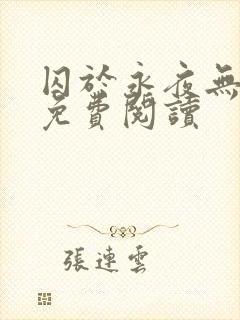 囚於永夜無
免費閱讀
張連雲